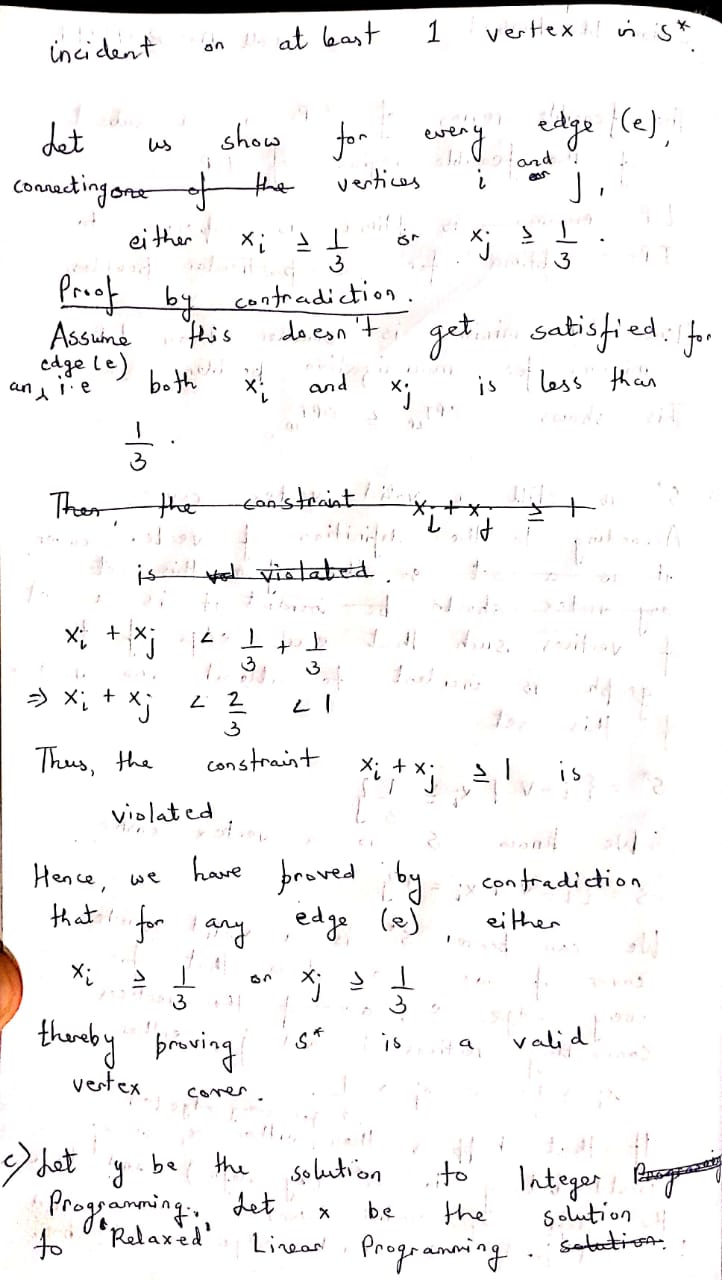 incident on at least 1 vertex in S*.
Let us show for every edge (e),
connecting one of the vertices i and j,
either xᵢ ≥ 1/3 or xⱼ ≥ 1/3.
Proof by contradiction.
Assume this doesn't get satisfied for
an edge (e) i.e both xᵢ and xⱼ is less than
1/3.
Then, the constraint xᵢ + xⱼ ≥ 1
is violated.
xᵢ + xⱼ < 1/3 + 1/3
⇒ xᵢ + xⱼ < 2/3 < 1
Thus, the constraint xᵢ + xⱼ ≥ 1 is
violated.
Hence, we have proved by contradiction
that for any edge (e), either
xᵢ ≥ 1/3 or xⱼ ≥ 1/3
thereby proving S* is a valid
vertex cover.
c) Let y be the solution to Integer
Programming. Let x be the solution
to 'Relaxed' Linear Programming. solution.